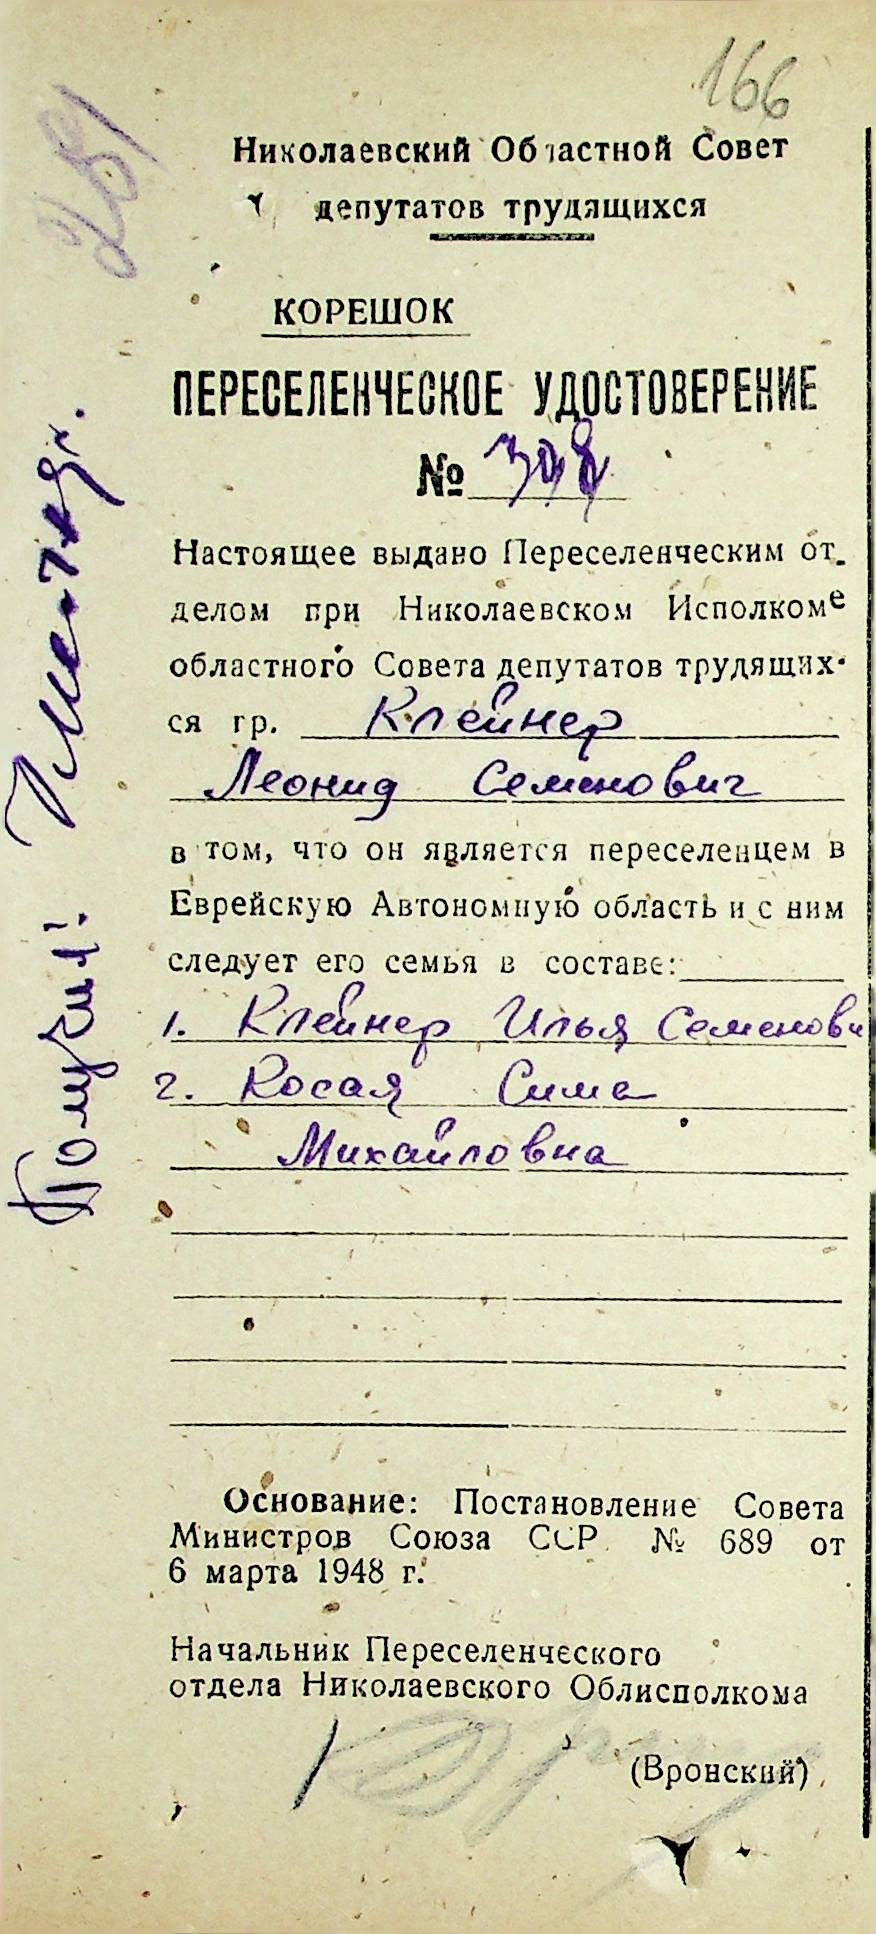 166
Николаевский Областной Совет
депутатов трудящихся
КОРЕШОК
ПЕРЕСЕЛЕНЧЕСКОЕ УДОСТОВЕРЕНИЕ
№ 308
Настоящее выдано Переселенческим от-
делом при Николаевском Исполкоме
областного Совета депутатов трудящих-
ся гр. Клейнер
Леонид Семенович
в том, что он является переселенцем в
Еврейскую Автономную область и с ним
следует его семья в составе:
1. Клейнер Илья Семенови
2. Косая Сима
Михайловна
Основание: Постановление Совета
Министров Союза ССР № 689 от
6 марта 1948 г.
Начальник Переселенческого
отдела Николаевского Облисполкома
(Вронский)
Получил: